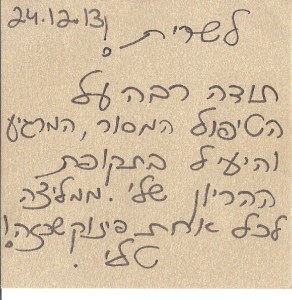 24.12.13
לשרית!
תודה רבה על
הטיפול המסור, המרגיע
והיעיל בתקופת
ההריון שלי. ממליצה
לכל אחת פינוק שכזה!
טלי.